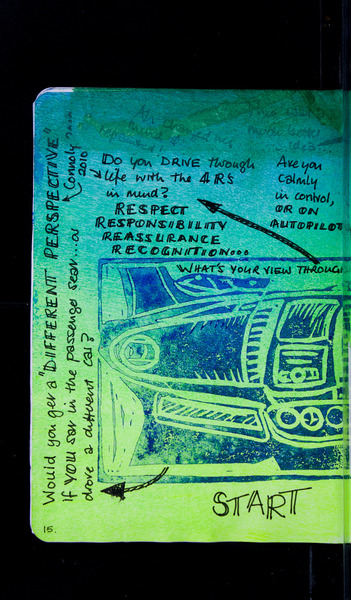 Do you DRIVE through
life with the 4 RS
in mind?
RESPECT
RESPONSIBILITY
REASSURANCE
RECOGNITION...
Are you
calmly
in control,
OR ON
AUTOPILOT
WHAT'S YOUR VIEW THROUGH
Would you get a "DIFFERENT PERSPECTIVE"
Connoly
2010
if YOU sat in the passenger seat or
drove a different car?
START
15.